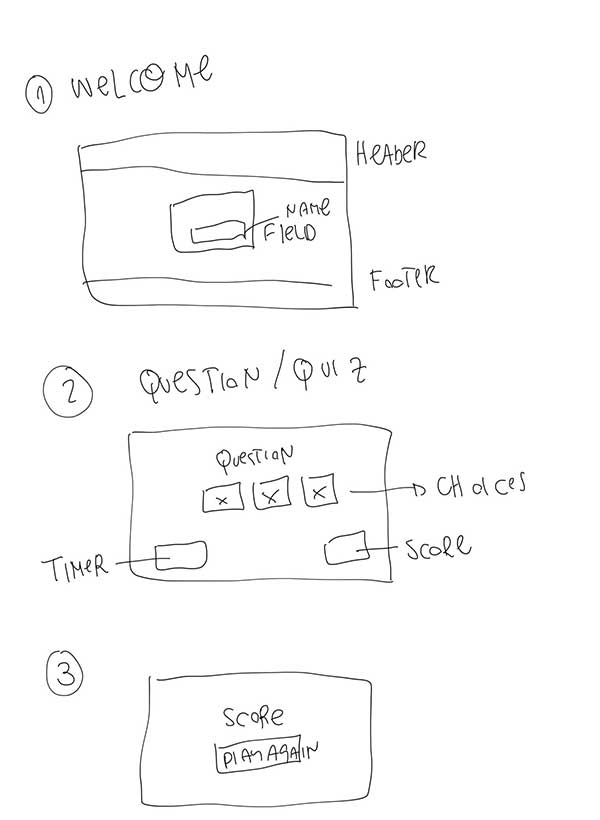 1 WELCOME
HEADER
NAME
FIELD
FOOTER
2 QUESTION/QUIZ
QUESTION
x x x
CHOICES
TIMER
SCORE
3
SCORE
PLAY AGAIN